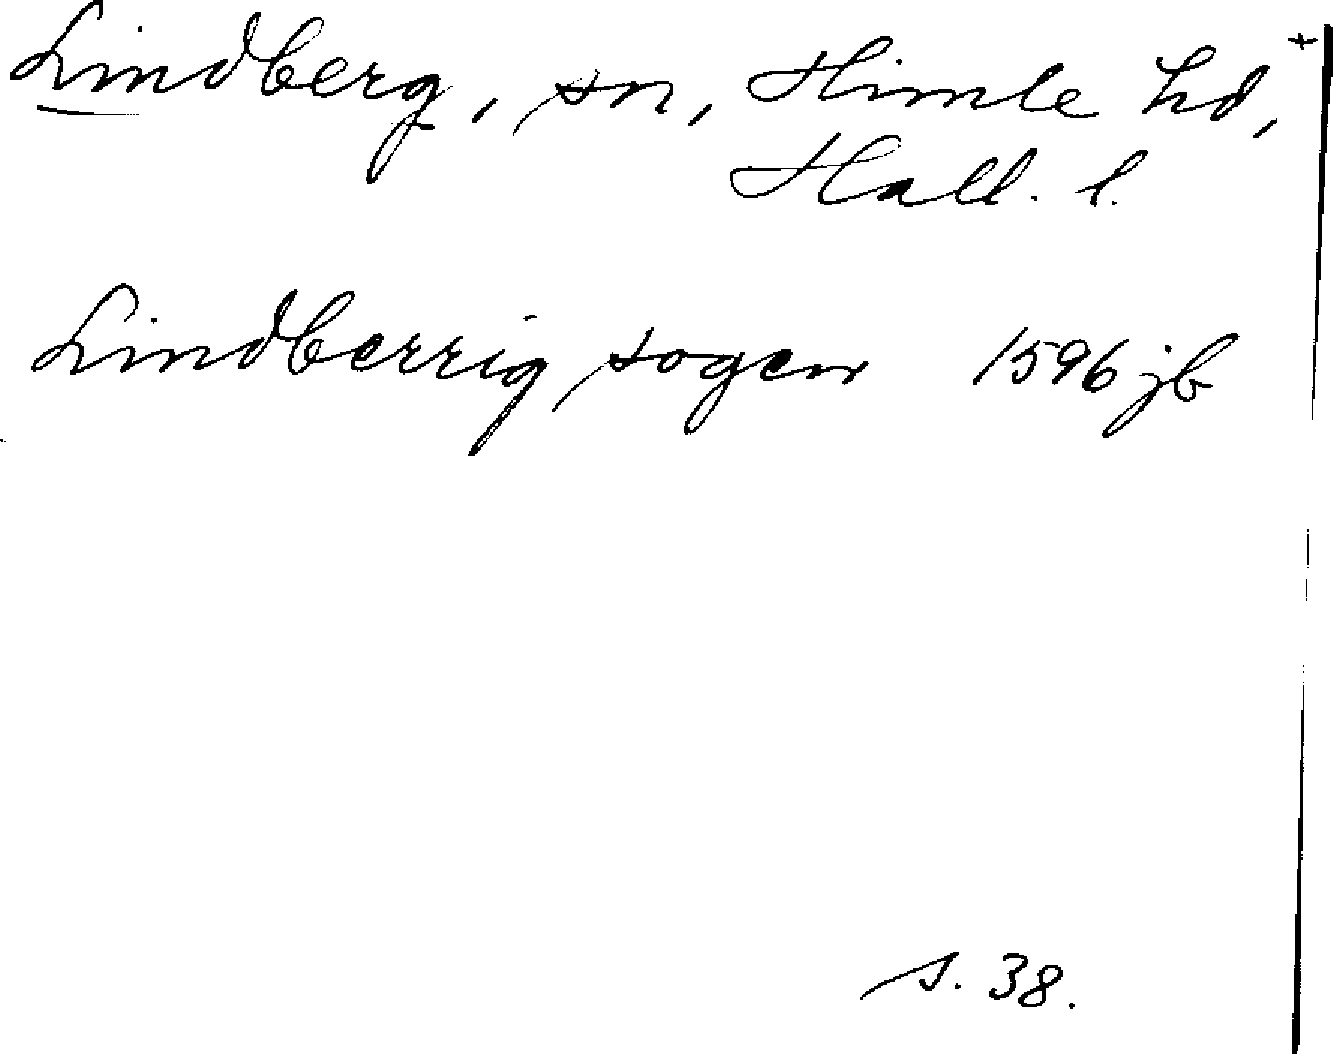 Lindberg, sn, Himle hd, +
Hall. l.
Lindberrig sogen 1596 jb
s. 38.